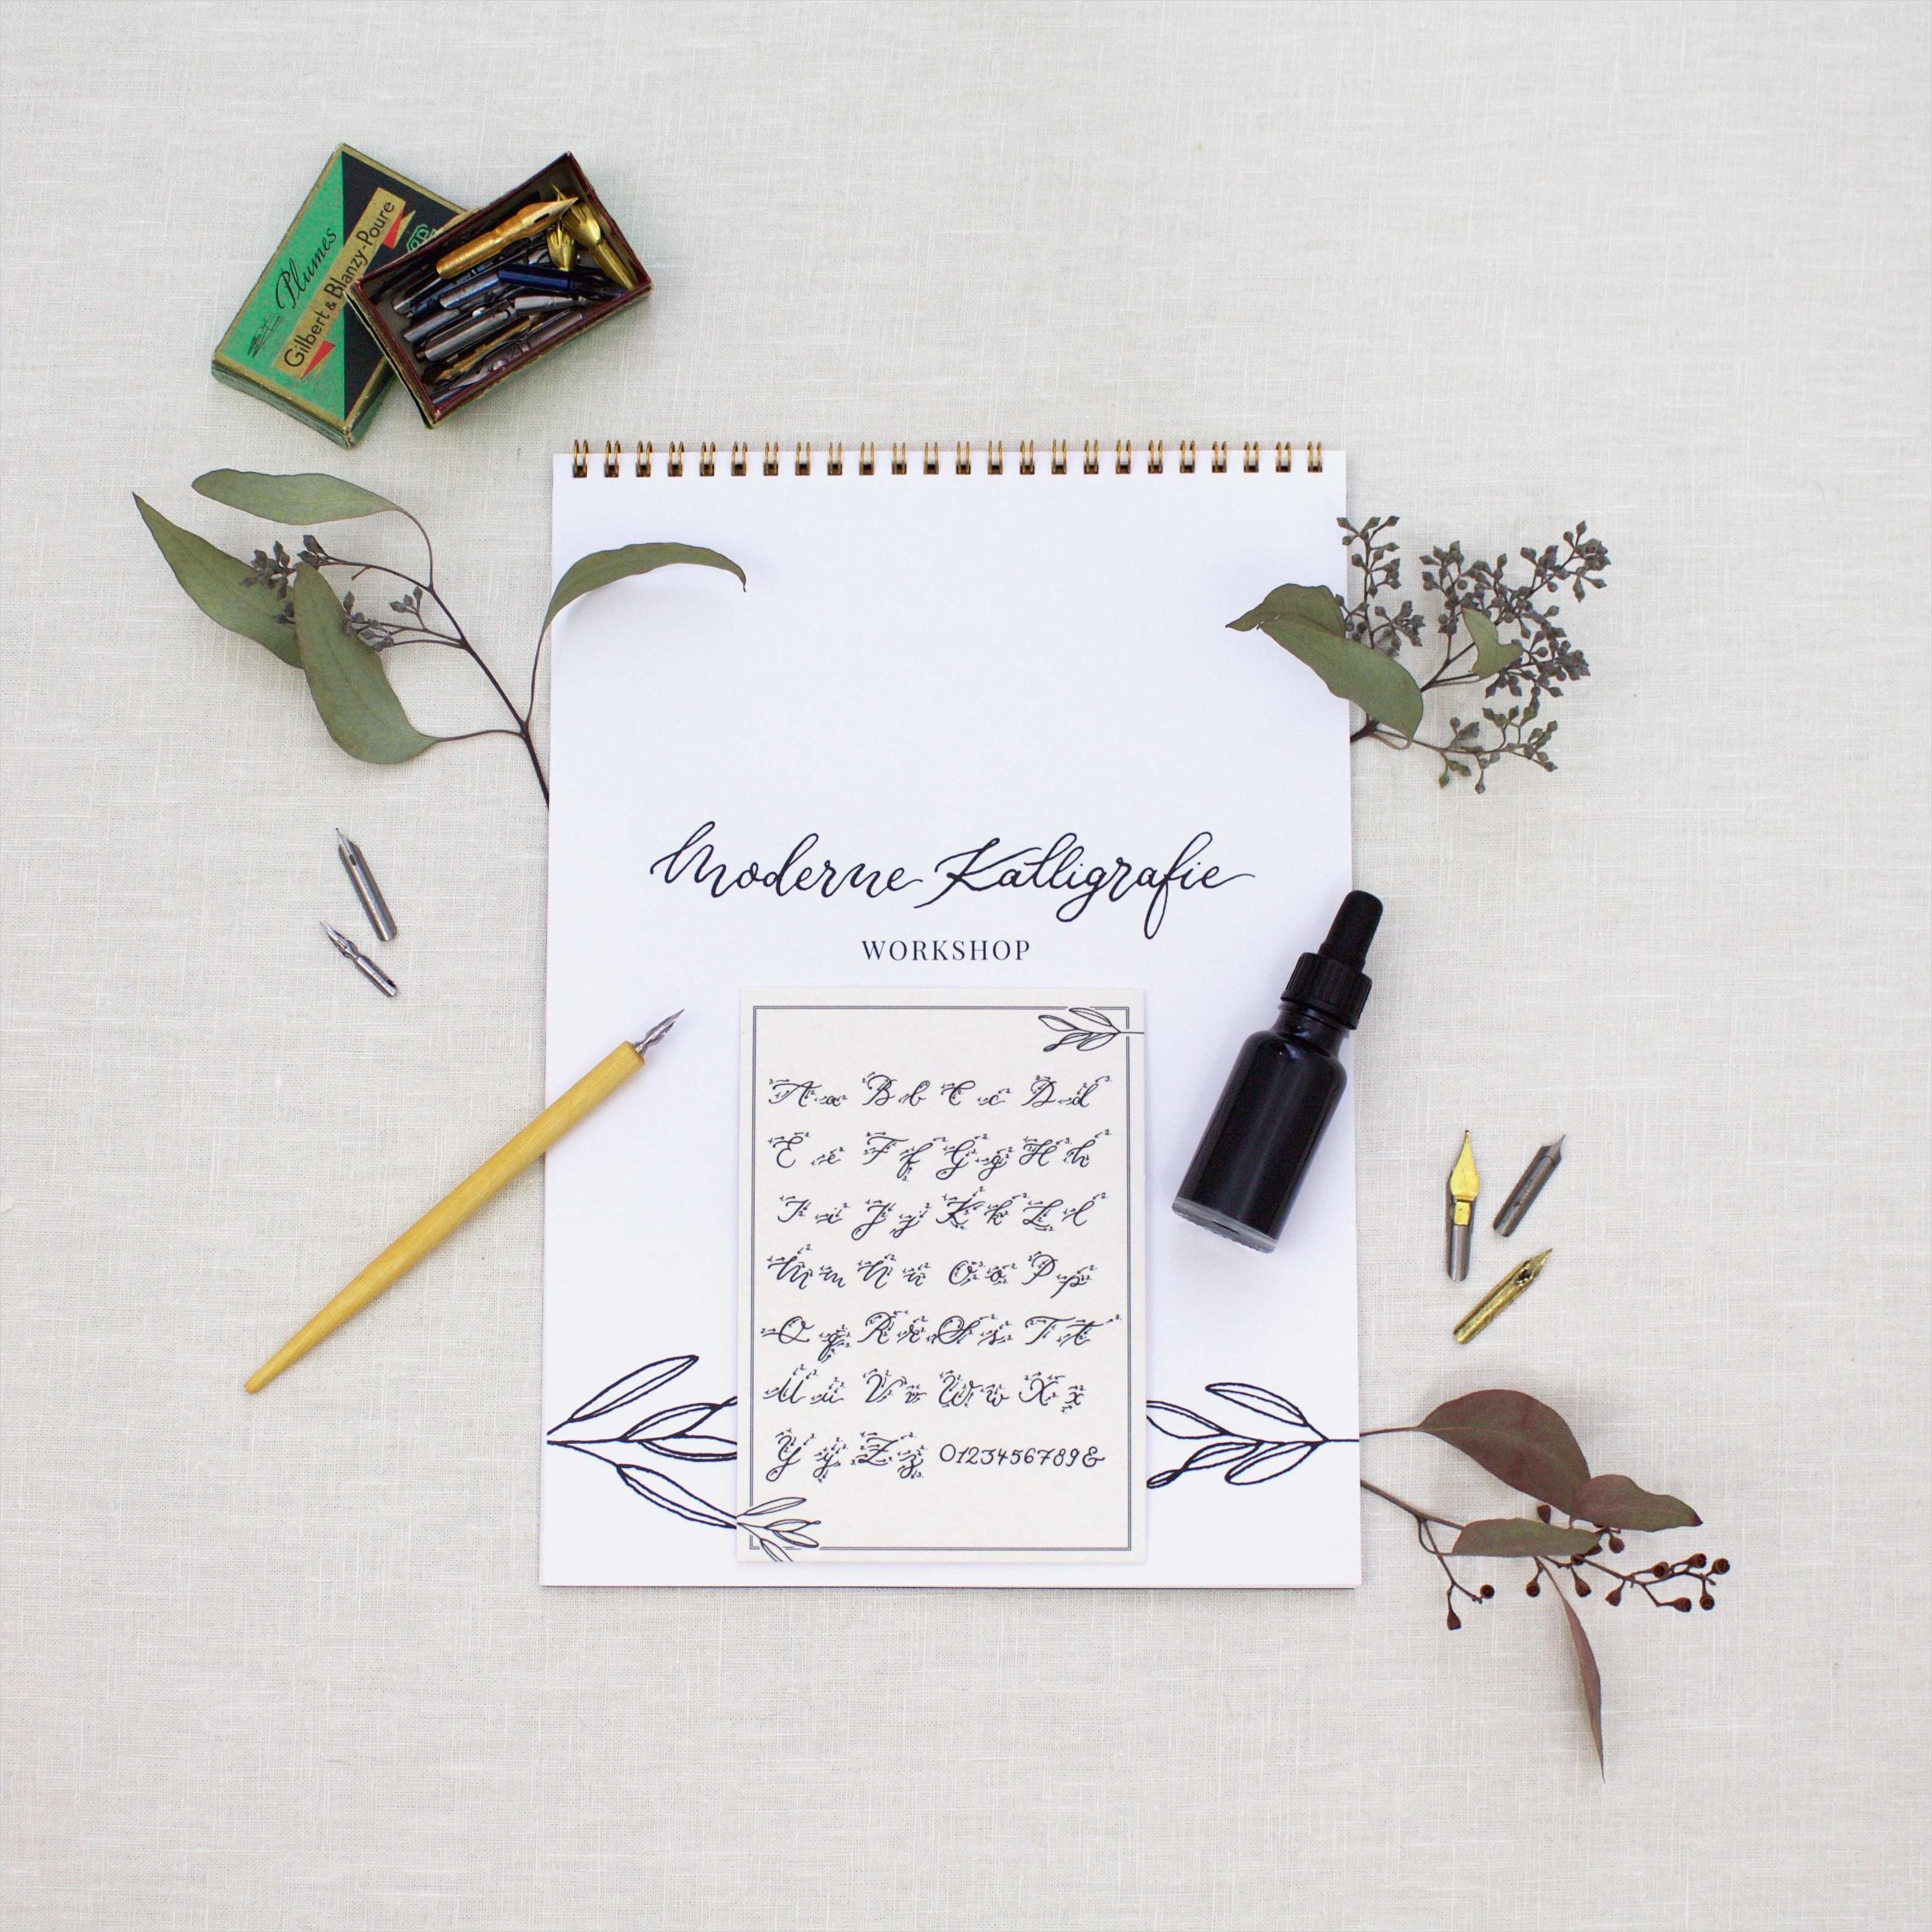 Plumes
Gilbert & Blanzy-Poure
Moderne Kalligrafie
WORKSHOP
A a B b C c D d
E e F f G g H h
I i J j K k L l
M m N n O o P p
Q q R r S s T t
U u V v W w X x
Y y Z z 0123456789&